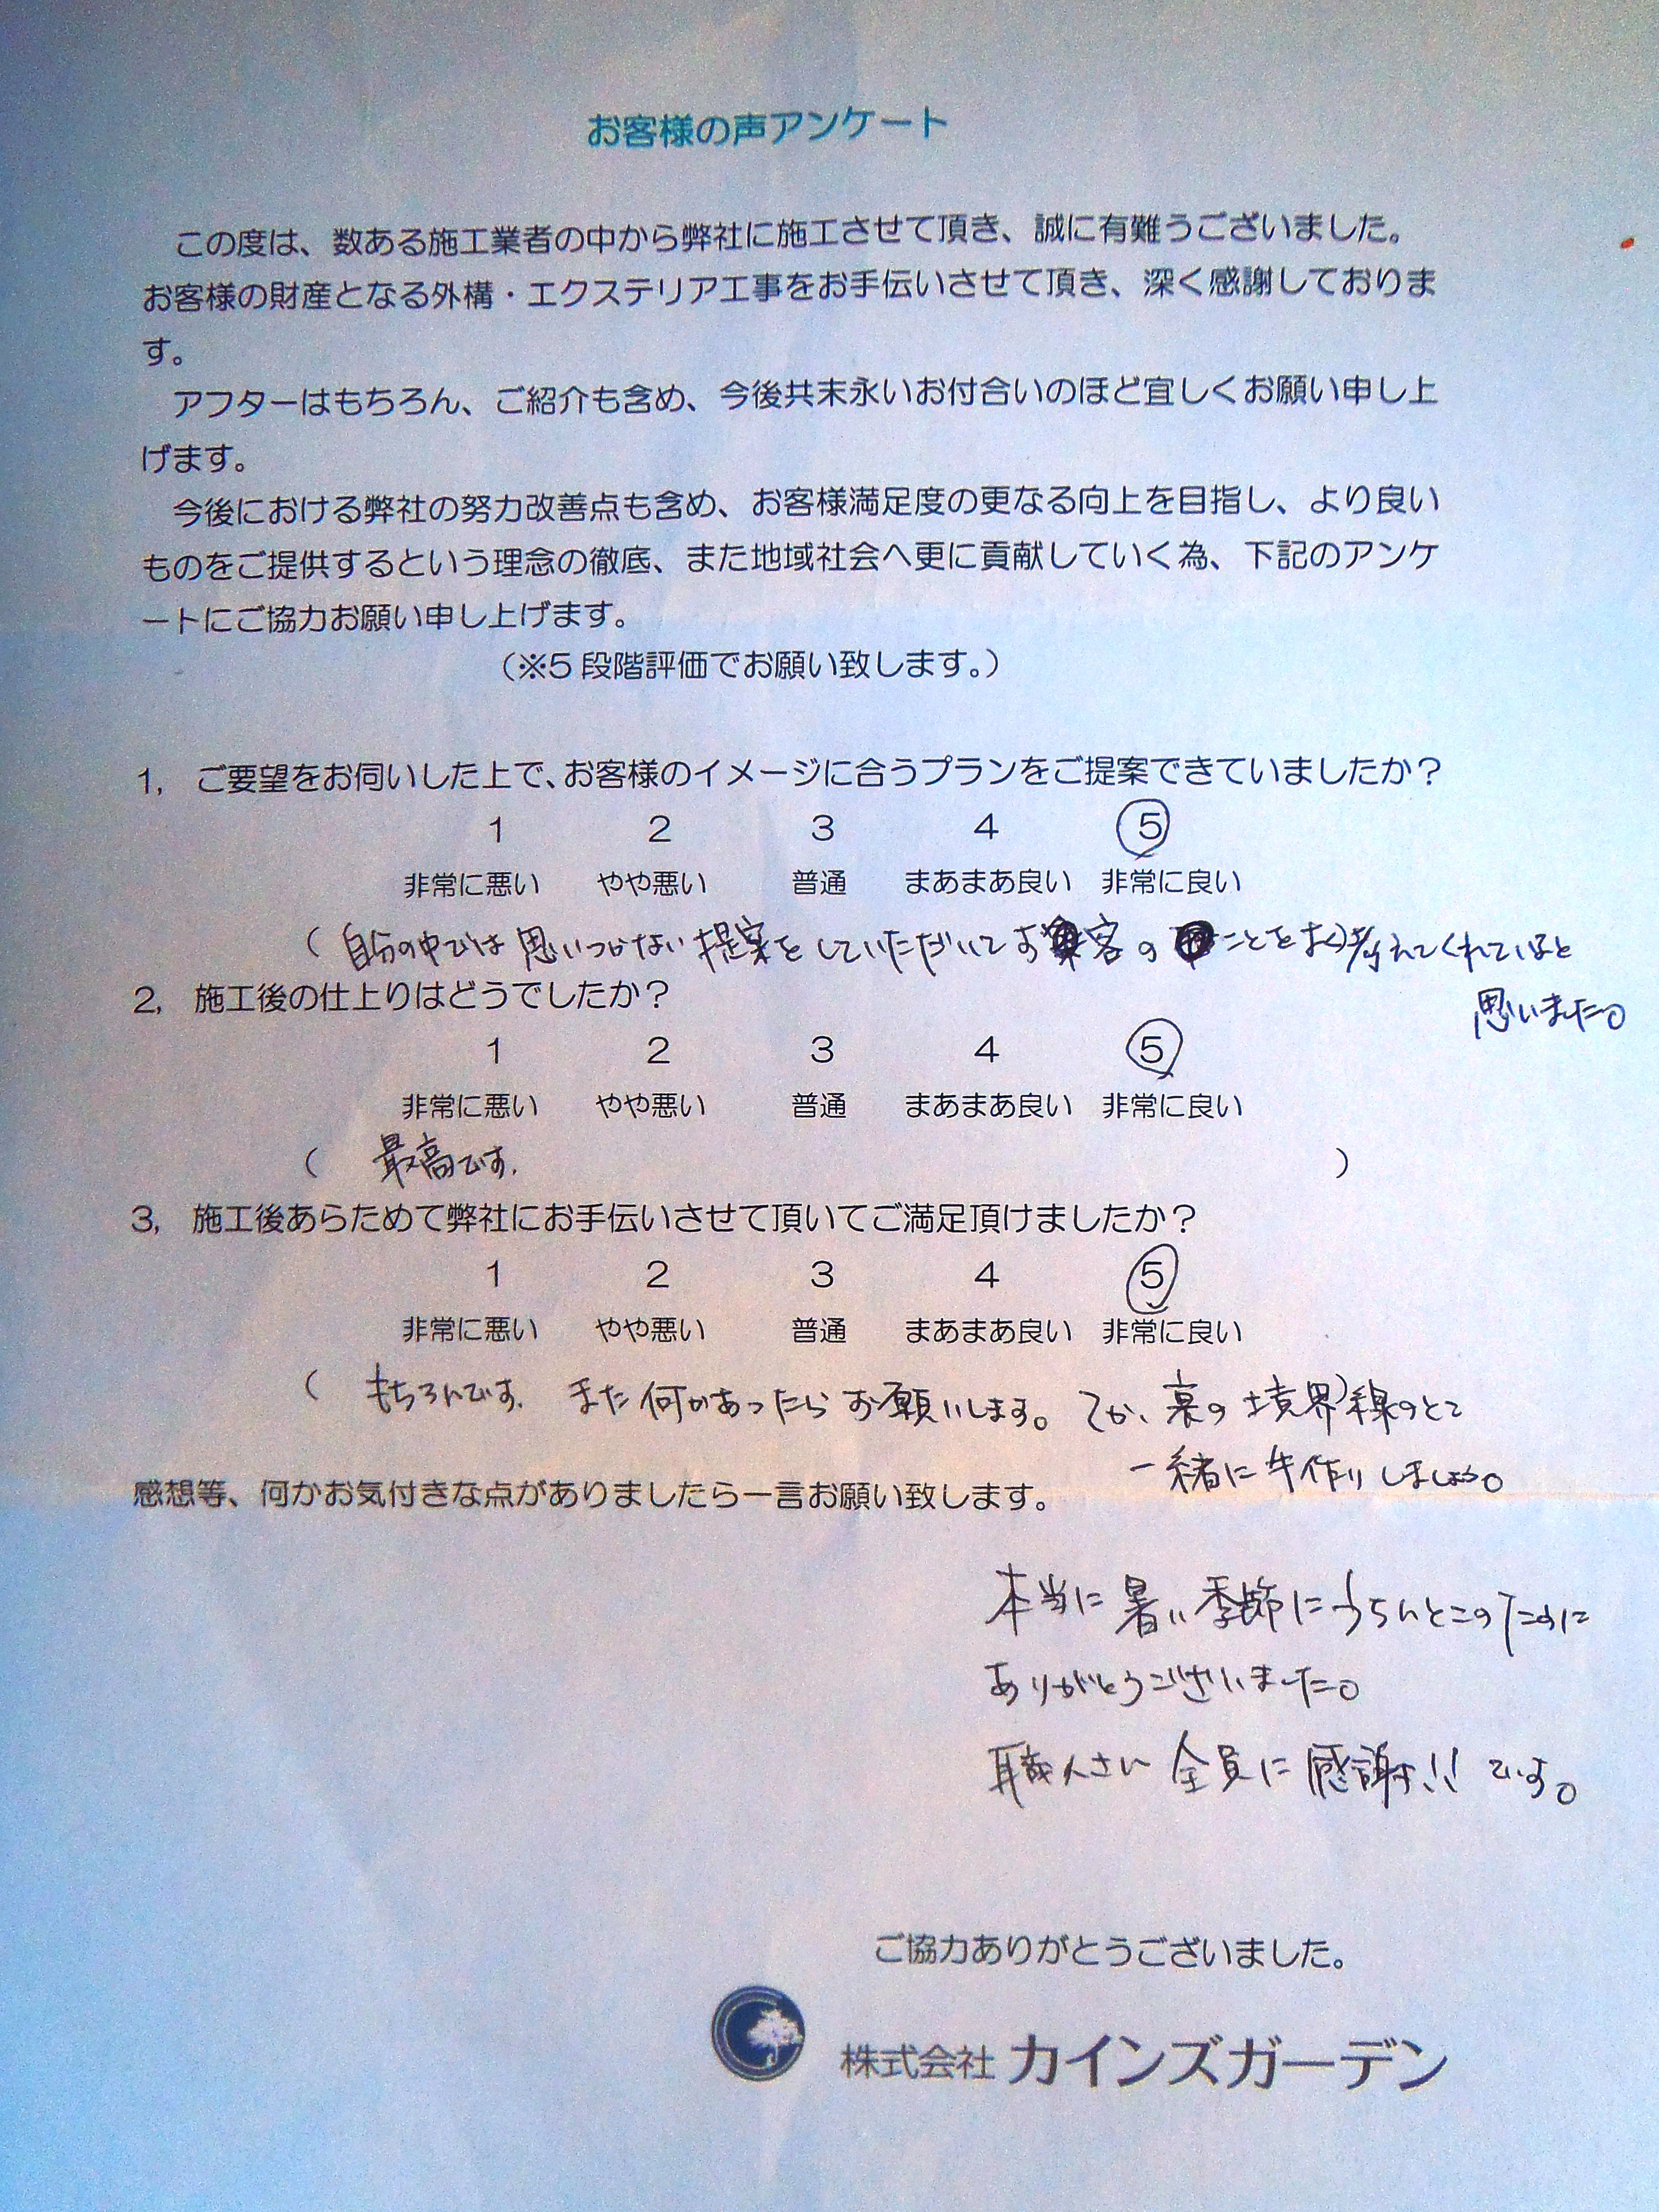 お客様の声アンケート
この度は、数ある施工業者の中から弊社に施工させて頂き、誠に有難うございました。
お客様の財産となる外構・エクステリア工事をお手伝いさせて頂き、深く感謝しておりま
す。
アフターはもちろん、ご紹介も含め、今後共末永いお付合いのほど宜しくお願い申し上
げます。
今後における弊社の努力改善点も含め、お客様満足度の更なる向上を目指し、より良い
ものをご提供するという理念の徹底、また地域社会へ更に貢献していく為、下記のアンケ
ートにご協力お願い申し上げます。
（※5 段階評価でお願い致します。）
1, ご要望をお伺いした上で、お客様のイメージに合うプランをご提案できていましたか？
1 2 3 4 5
非常に悪い やや悪い 普通 まあまあ良い 非常に良い
( 自分の中では思いつかない提案をしていただいてお客のことをよく考えてくれているなと
思いました。
2, 施工後の仕上りはどうでしたか？
1 2 3 4 5
非常に悪い やや悪い 普通 まあまあ良い 非常に良い
( 最高です. )
3, 施工後あらためて弊社にお手伝いさせて頂いてご満足頂けましたか？
1 2 3 4 5
非常に悪い やや悪い 普通 まあまあ良い 非常に良い
( もちろんです. また何かあったらお願いします。てか、裏の境界線のとこ )
一緒に手作りしましょう。
感想等、何かお気付きな点がありましたら一言お願い致します。
本当に暑い季節にうちんとこのために
ありがとうございました。
職人さん全員に感謝!! です。
ご協力ありがとうございました。
株式会社 カインズガーデン